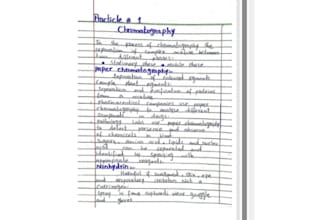 Practicle # 1
Chromatography
Is the process of chromatography the
separation of complex mixture between
two different phases
• Stationary phase • mobile phase
paper chromatography:-
Separation of coloured pigments
Complex plant pigments.
Separation and purification of proteins
from a mixture
Pharmaceutical companies use paper
Chromatography to analyse different
Compounds in drugs.
Pathology labs use paper chromatography
to detect presence and absence
of chemicals in blood
Sugars, amino acid, lipids and nucleic
acid can be separated and
identified by spraying with
appropriate reagents.
Ninhydrin:-
Harmful if swallowed, skin, eye
and respiratory irritation Not a
Carcinogen.
Spray in fume cupboard wear goggle
and gloves